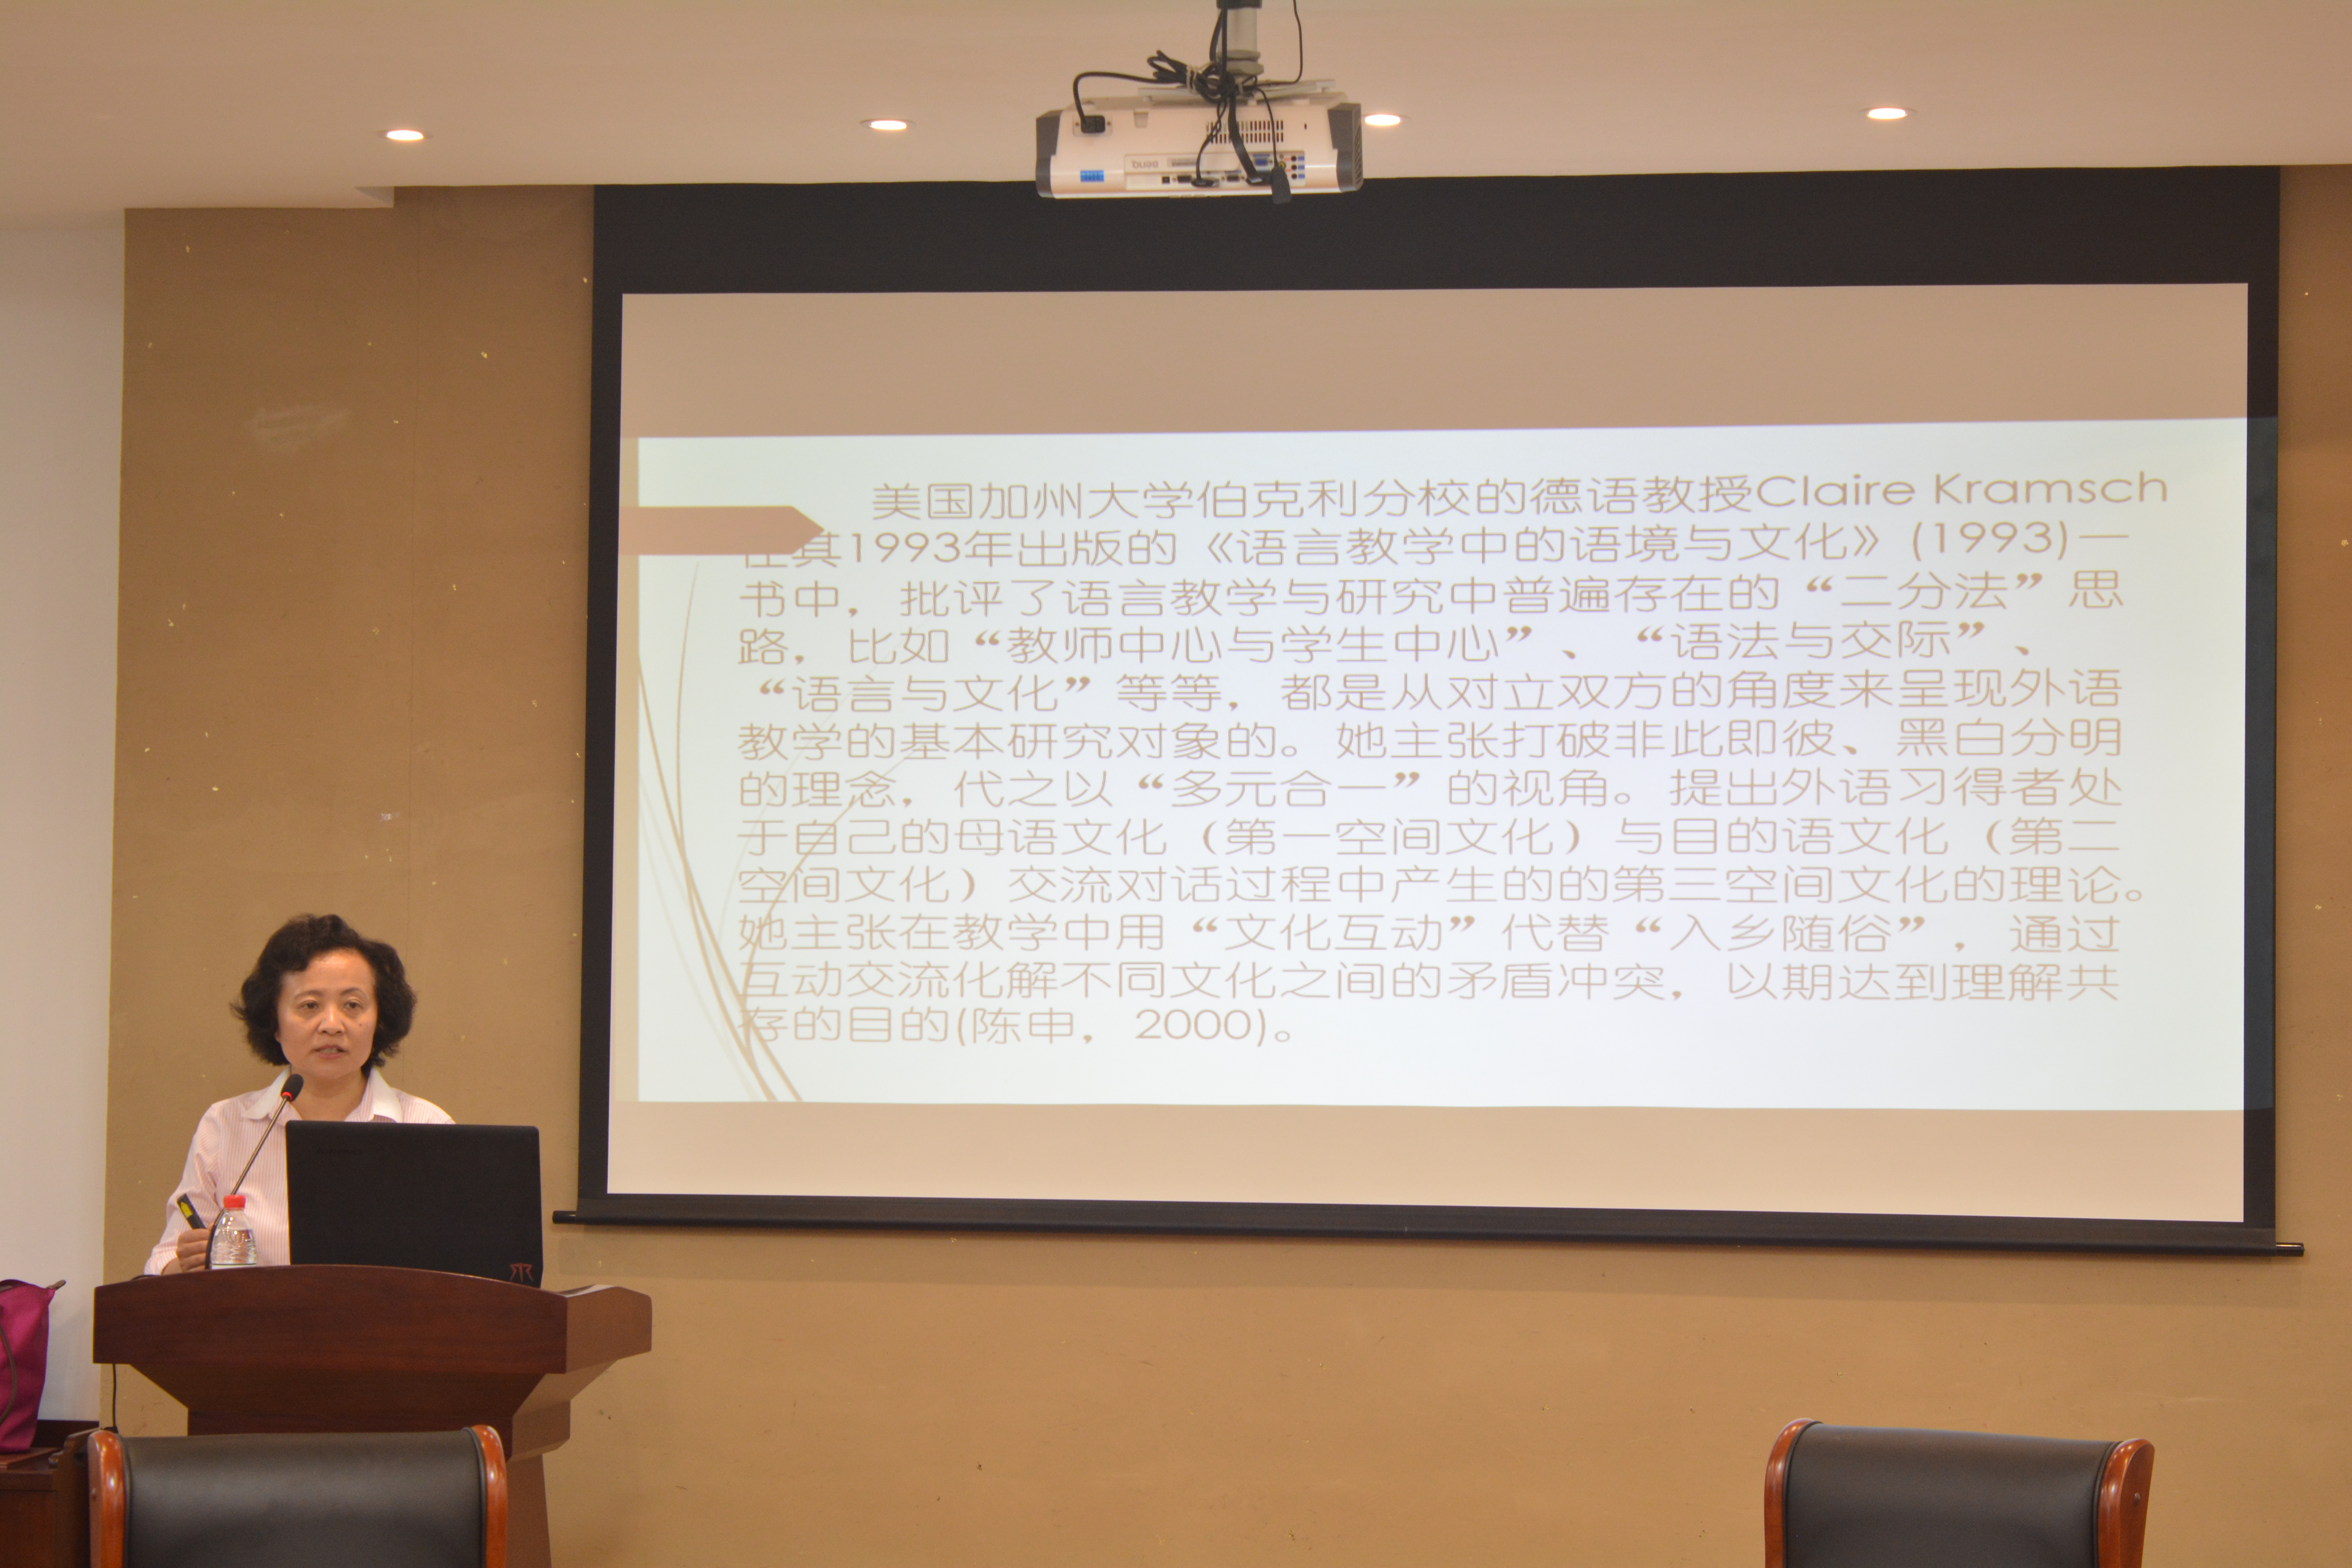 BenQ
美国加州大学伯克利分校的德语教授Claire Kramsch
在其1993年出版的《语言教学中的语境与文化》(1993)一
书中，批评了语言教学与研究中普遍存在的“二分法”思
路，比如“教师中心与学生中心”、“语法与交际”、
“语言与文化”等等，都是从对立双方的角度来呈现外语
教学的基本研究对象的。她主张打破非此即彼、黑白分明
的理念，代之以“多元合一”的视角。提出外语习得者处
于自己的母语文化（第一空间文化）与目的语文化（第二
空间文化）交流对话过程中产生的的第三空间文化的理论。
她主张在教学中用“文化互动”代替“入乡随俗”，通过
互动交流化解不同文化之间的矛盾冲突，以期达到理解共
存的目的(陈申，2000)。